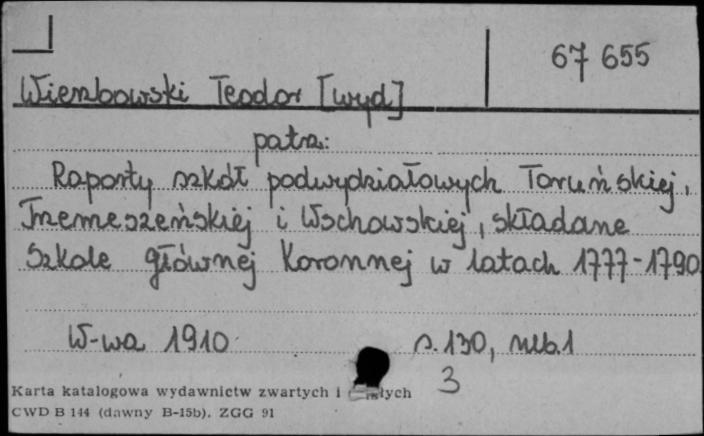 67 655
Wierzbowski Teodor [wyd]
patrz:
Raporty szkół podwydziałowych Toruńskiej,
Trzemeszeńskiej i Wschowskiej, składane
Szkole głównej Koronnej w latach 1777-1790
W-wa 1910 s. 130, nlb. 1
3
Karta katalogowa wydawnictw zwartych i
CWD B 144 (dawny B-15b). ZGG 91